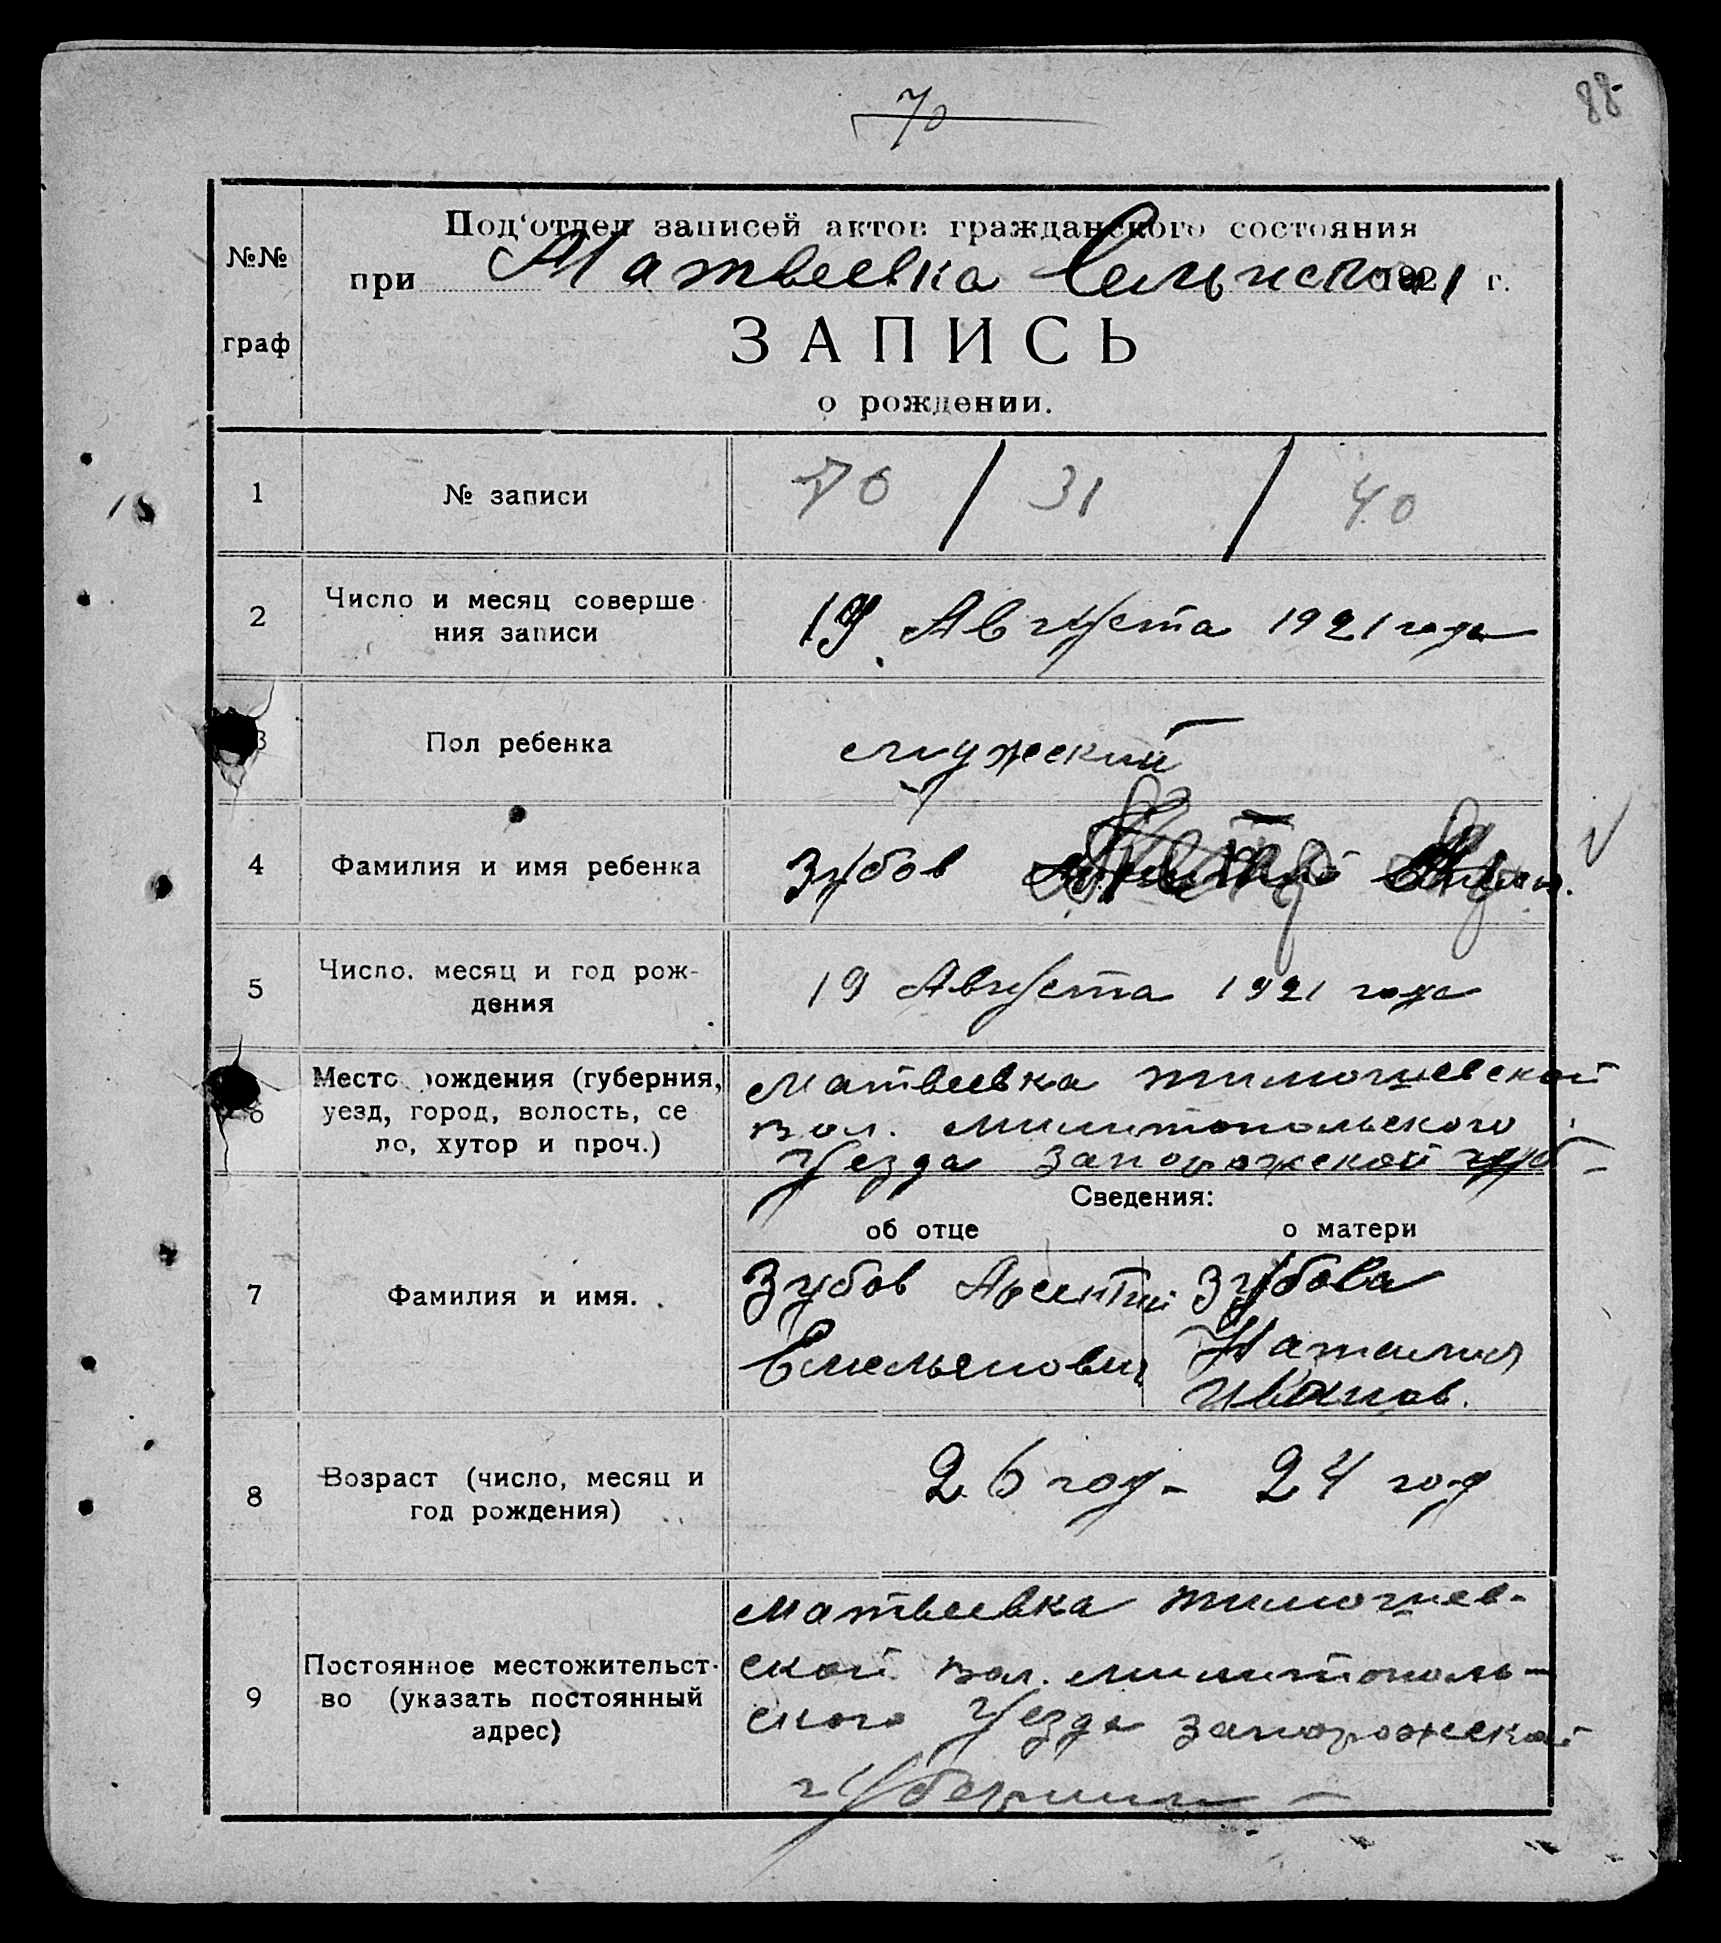 70
88
Под'отдел записей актов гражданского состояния
№№
граф
при Матвеевка 1921 г.
ЗАПИСЬ
о рождении.
1 № записи 70 / 31 / 40
2 Число и месяц соверше
ния записи
19 Августа 1921 года
3 Пол ребенка мужский
4 Фамилия и имя ребенка Зубов
5 Число. месяц и год рож-
дения
19 Августа 1921 года
6 Место рождения (губерния,
уезд, город, волость, се
ло, хутор и проч.)
Матвеевка Тимошевской
вол. Милитопольского
Уезда Запорожской губ-
Сведения:
об отце о матери
7 Фамилия и имя.
Зубов Арсентий
Емельянович
Зубова
Наталия
Иванов.
8 Возраст (число, месяц и
год рождения)
26 год- 24 год
9 Постоянное местожительст-
во (указать постоянный
адрес)
Матвеевка Тимошев-
ской вол. Милитополь-
ского Уезда Запорожской
губернии -